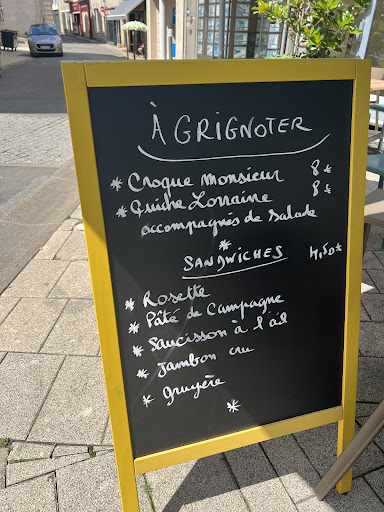 À GRIGNOTER
* Croque Monsieur 8 €
* Quiche Lorraine 8 €
accompagnés de salade
*
SANDWICHES 4,50 €
* Rosette
* Pâté de Campagne
* Saucisson à l'ail
* Jambon cru
* gruyère
*